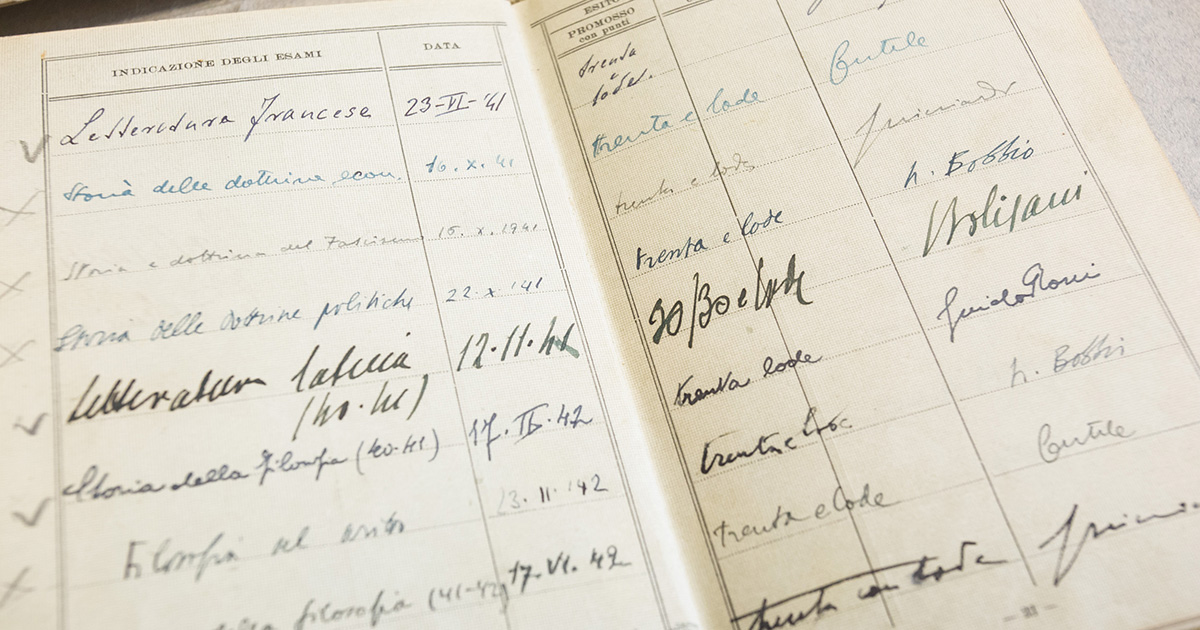 INDICAZIONE DEGLI ESAMI
DATA
Letteratura Francese 23-VI-'41
Storia delle dottrine econ. 16.X.41
Storia e dottrina del Fascismo 15.X.1941
Storia delle dottrine politiche 22.X.'41
Letteratura latina 12.11.41
(40.41)
Storia della filosofia (40-41) 17.II.42
Filosofia del diritto 23.II.'42
della filosofia (41-42) 17.VI.42
ESITO
PROMOSSO
con punti
trenta
e
lode.
trenta e lode Gentile
trenta e lode
trenta e lode N. Bobbio
30/30 e lode
trenta lode Guido Rossi
trenta e lode N. Bobbio
trenta e lode Gentile
trenta con lode
— 21 —